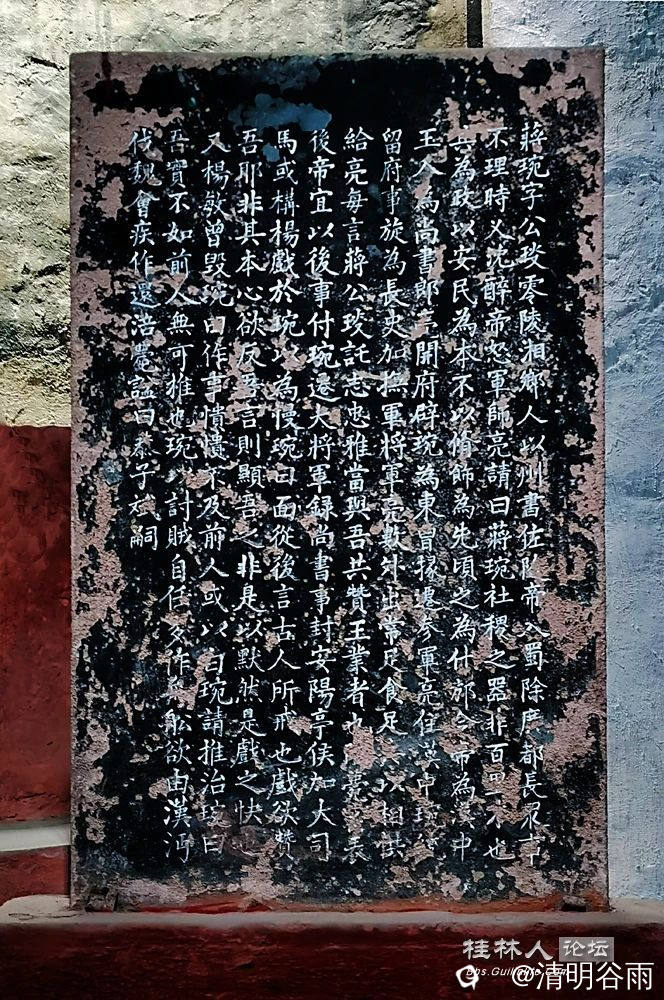 蔣琬字公琰零陵湘鄉人以州書佐随帝入蜀除廣都長眾事
不理時又沈醉帝怒軍師亮請曰蔣琬社稷之器非百里才也
其為政以安民為本不以脩飾為先頃之為什邡令帝為漢中
王入為尚書郎亮開府辟琬為東曹掾遷參軍亮住漢中琬統
留府事旋為長史加撫軍將軍亮數外出常足食足以相供
給亮每言蔣公琰託志忠雅當與吾共贊王業者也亮表
後帝宜以後事付琬遷大將軍録尚書事封安陽亭侯加大司
馬或構楊戲於琬以為慢琬曰面從後言古人所戒也戲欲贊
吾耶非其本心欲反吾言則顯吾之非是以默然是戲之快也
又楊敏曾毀琬曰作事憒憒不及前人或以白琬請推治琬曰
吾實不如前人無可推也琬以討賊自任多作舟船欲由漢沔
伐魏會疾作還涪薨謚曰恭子斌嗣
桂林人论坛
bbs.Guilinlife.com
@清明谷雨